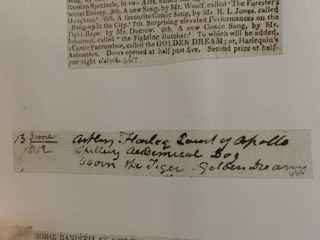 Russian Spectacle, in two Acts, called
Secret Enemy. 5th. A new Song, by Mr. Woolf, called 'The Forester's
Daughter.' 6th. A favourite Comic Song, by Mr. H. L. Jones, called
up in the City.' 7th. Surprising elevated Performances on the
Tight-Rope, by Mr. Ducrow. 8th. A new Comic Song, by Mr.
Johannot, called 'the Fighting Butcher.' To which will be added,
a Comic Pantomime, called the GOLDEN DREAM; or, Harlequin's
Animation. Doors opened at half past five. Second price at half-
past eight o'clock.
13 June
1812
Court of Apollo
Academical Dog
the Tiger Golden Dream
HORSE BANDITTI